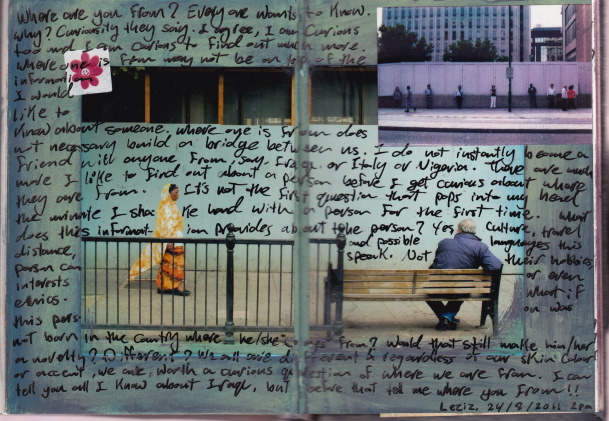 Where are you from? Everyone wants to know.
Why? Curiosity they say. I agree, I am curious
too and I am curious to find out much more.
Where one is from may not be on top of the
information
I would
like to
know about someone, where one is from does
not necessary build a bridge between us. I do not instantly become a
friend with anyone from, say, Iraq, or Italy or Nigeria. There are much
more I like to find out about a person before I get curious about where
they are from. It's not the first question that pops into my head
the minute I shake hand with a person for the first time. What
does this information provides about the person? Yes, culture, travel
distance, and possible languages this
person can speak. Not their hobbies
interests or even
ethics. what if
this person was
not born in the country where he/she comes from? Would that still make him/her
a novelty? Different? We all are different regardless of our skin colour
or accent, we are worth a curious question of where we are from. I can
tell you all I know about Iraq, but before that tell me where you from!!
24/9/2011 2pm